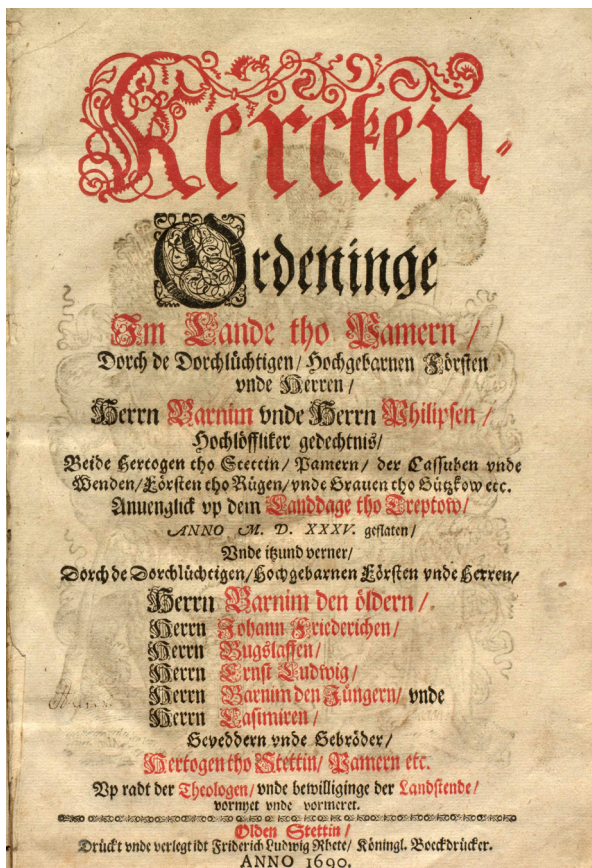 Kercken-
Ordeninge
Im Lande tho Pamern /
Dorch de Dorchlüchtigen / Hochgebarnen Försten
vnde Herren /
Herrn Barnim vnde Herrn Philipsen /
Hochlöffliker gedechtnis /
Beide Hertogen tho Stettin / Pamern / der Cassuben vnde
Wenden / Försten tho Rügen / vnde Grauen tho Gützkow etc.
Anuenglick vp dem Landdage tho Treptow /
ANNO M. D. XXXV. geslaten /
Vnde itzund verner /
Dorch de Dorchlüchtigen / Hochgebarnen Försten vnde Herren /
Herrn Barnim den öldern /
Herrn Johann Friederichen /
Herrn Bugslaffen /
Herrn Ernst Ludwig /
Herrn Barnim den Jüngern / vnde
Herrn Casimiren /
Geveddern vnde Gebröder /
Hertogen tho Stettin / Pamern etc.
Vp radt der Theologen / vnde bewilliginge der Landstende /
vornyet vnde vormeret.
Olden Stettin /
Drückt vnde verlegt idt Friderich Ludwig Rhete / Köningl. Boeckdrücker.
ANNO 1690.